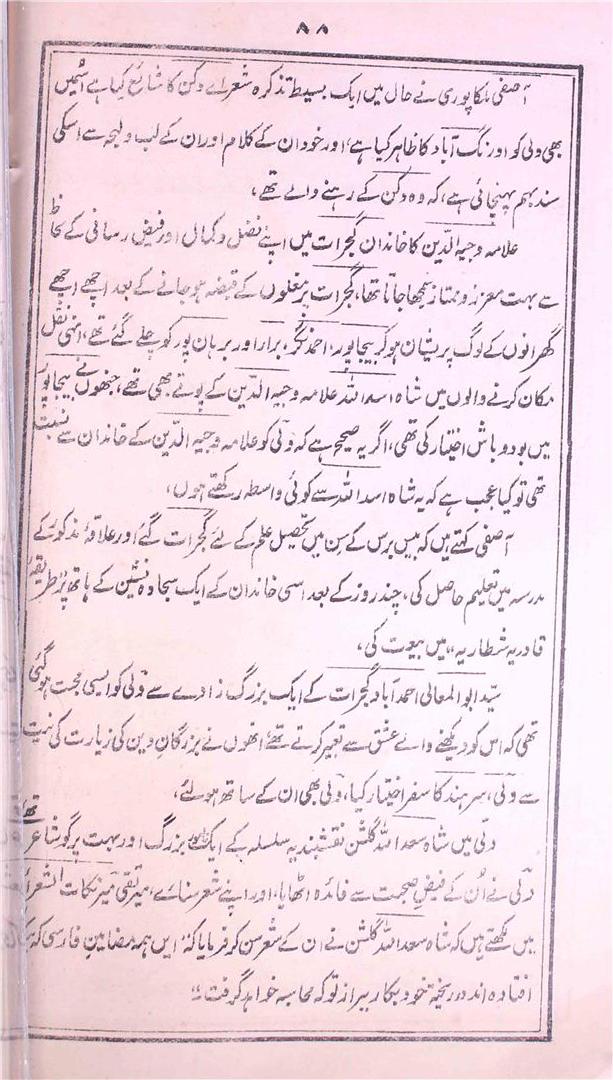 ۸۸
آصفی ملکاپوری نے حال میں ایک بسیط تذکرہ شعراے دکن کا شائع کیا ہے اسمیں
بھی ولی کو اورنگ آباد کا ظاہر کیا ہے، اور خود ان کے کلام اور ان کے لب ولہجہ سے اسکی
سند بہم پہنچائی ہے، کہ وہ دکن کے رہنے والے تھے،
علامہ وجیہ الدین کا خاندان گجرات میں اپنے فضل وکمال اور فیض رسانی کے لحاظ
سے بہت معزز و ممتاز سمجھا جاتا تھا، گجرات پر مغلوں کے قبضہ ہوجانے کے بعد اچھے اچھے
گھرانوں کے لوگ پریشان ہوکر بیجاپور، احمدنگر، برار اور برہان پور کو چلے گئے تھے، انہی نقل
مکان کرنے والوں میں شاہ اسد اللہ علامہ وجیہ الدین کے پوتے بھی تھے، جنھوں نے بیجاپور
میں بود و باش اختیار کی تھی، اگر یہ صحیح ہے کہ ولی کو علامہ وجیہ الدین کے خاندان سے نسبت
تھی تو کیا عجب ہے کہ یہ شاہ اسد اللہ سے کوئی واسطہ رکھتے ہوں،
آصفی کہتے ہیں کہ بیس برس کے سن میں تحصیل علم کے لئے گجرات گئے اور علاقۂ مذکور کے
مدرسہ میں تعلیم حاصل کی، چند روز کے بعد اسی خاندان کے ایک سجادہ نشین کے ہاتھ پر طریقہ
قادریہ شطاریہ،، میں بیعت کی،
سید ابو المعالی احمد آباد گجرات کے ایک بزرگ زادے سے ولی کو ایسی محبت ہوگئی
تھی کہ اس کو دیکھنے والے عشق سے تعبیر کرتے تھے، انھوں نے بزرگان دین کی زیارت کی نیت
سے دلی، سرہند کا سفر اختیار کیا، ولی بھی ان کے ساتھ ہولئے،
دلی میں شاہ سعد اللہ گلشن نقشبندیہ سلسلہ کے ایک نامور بزرگ اور بہت پرگو شاعر تھے
ولی نے اُن کے فیض صحبت سے فائدہ اٹھایا، اور اپنے شعر سنائے، میر تقی میر نکات الشعراء
میں لکھتے ہیں کہ شاہ سعد اللہ گلشن نے ان کے شعر سن کر فرمایا کہ ”ایں ہمہ مضامین فارسی کہ
افتادہ اند در ریختہ خود بکار ببر از تو کہ محاسبہ خواہد گرفت“